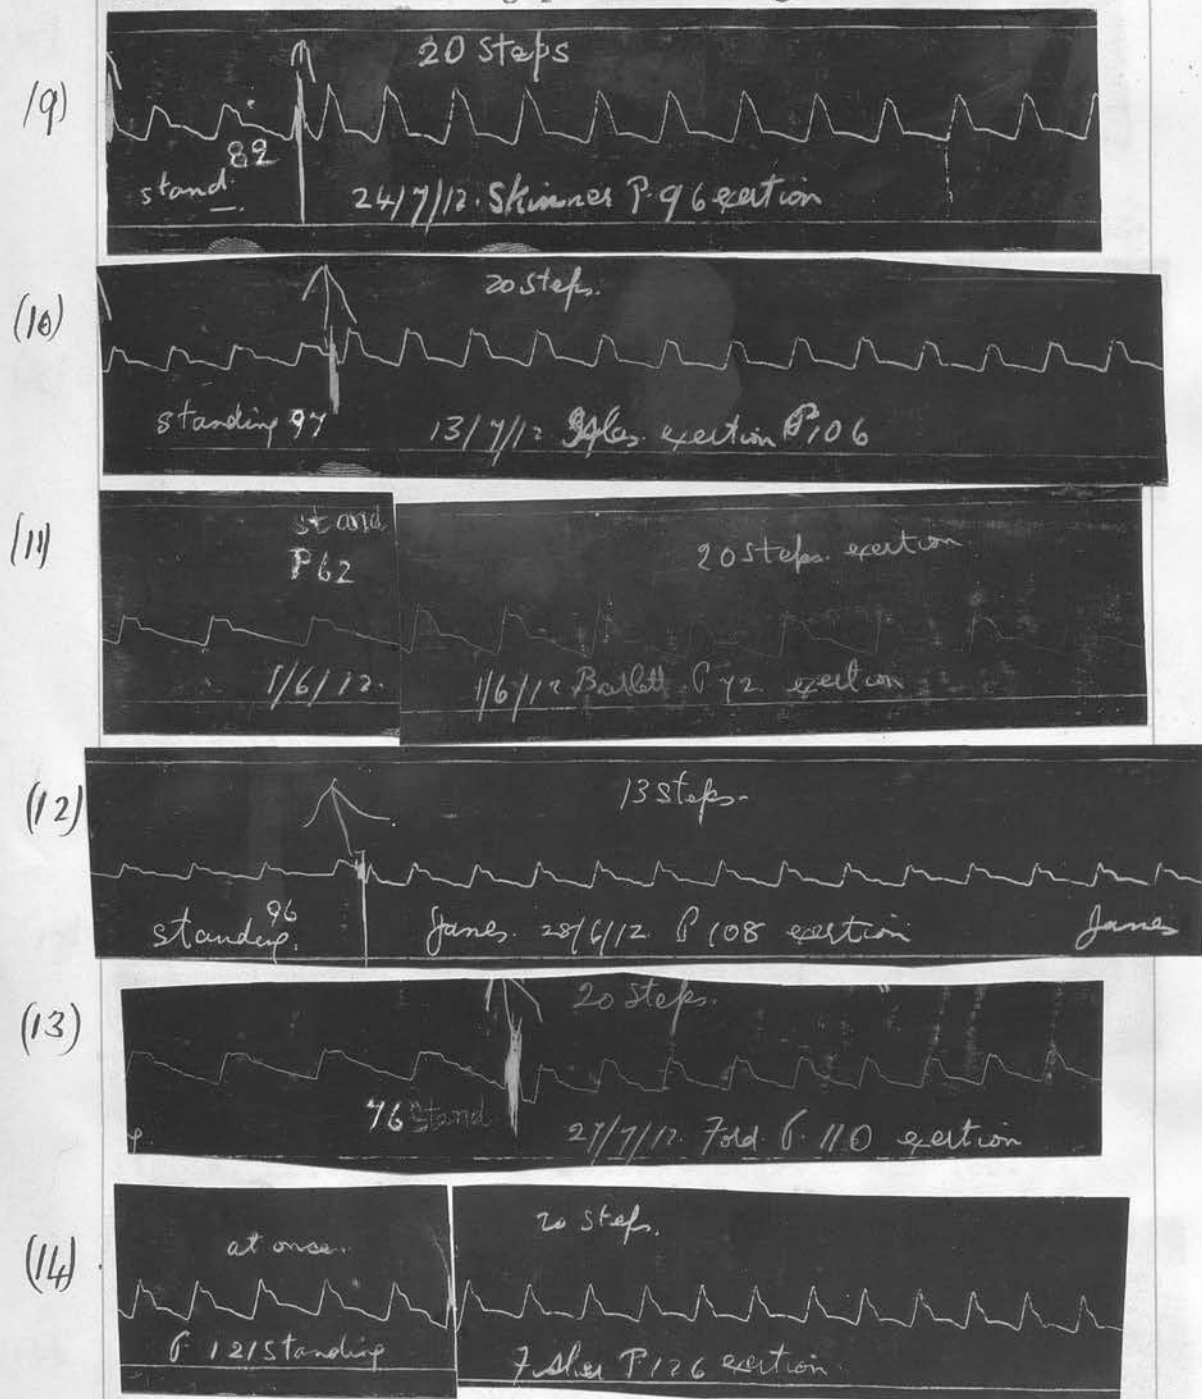 (9)
20 Steps
82
stand.
24/7/12. Skinner P. 96 exertion
(10)
20 steps.
standing 97
13/7/12 exertion P. 106
(11)
stand
P 62
1/6/12.
20 Steps. exertion
1/6/12 Bartlett P 72 exertion
(12)
13 Steps-
96
standing.
James. 28/6/12. P 108 exertion
James
(13)
20 Steps.
76 Stand
27/7/12. Ford P. 110 exertion
(14)
at once.
P 121 Standing
20 Steps.
Fisher P 126 exertion